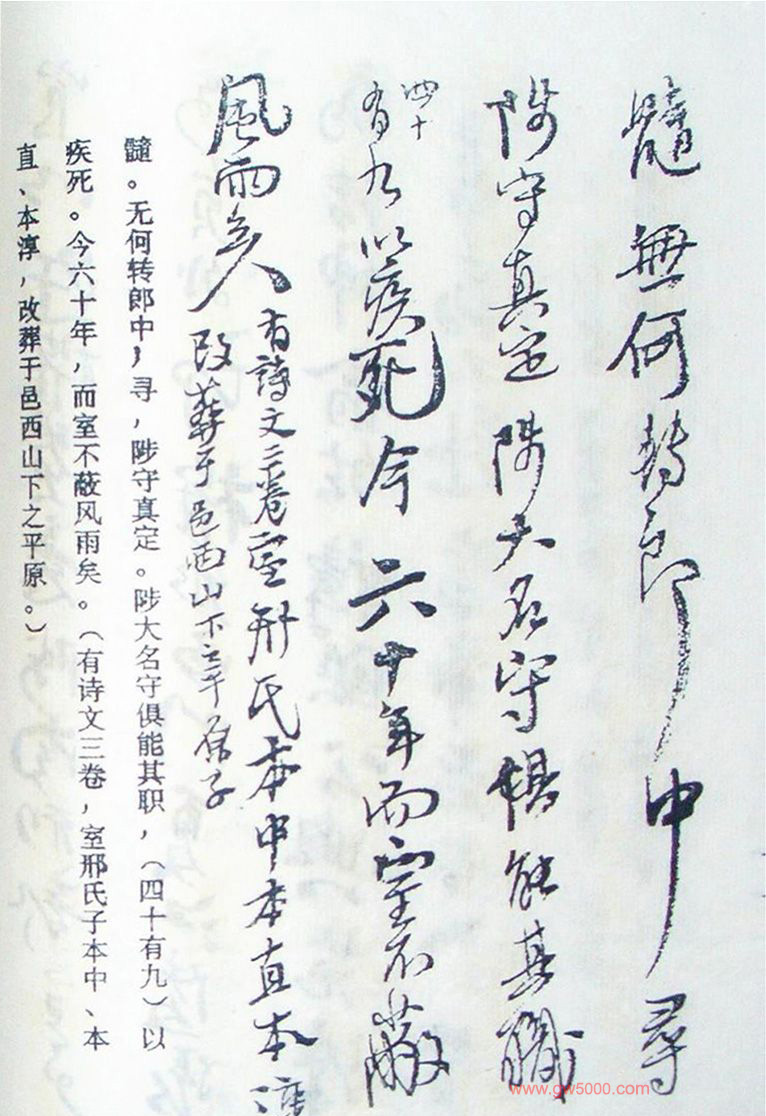 髓無何转郎中尋
陟守真定陟大名守俱能其職
四十
有九以疾死今六十年而室不蔽
風雨矣有詩文三卷室邢氏本中本直本淳
改葬于邑西山下之平原子
髓。无何转郎中，寻，陟守真定。陟大名守俱能其职，（四十有九）以
疾死。今六十年，而室不蔽风雨矣。（有诗文三卷，室邢氏子本中、本
直、本淳，改葬于邑西山下之平原。）
www.gw5000.com